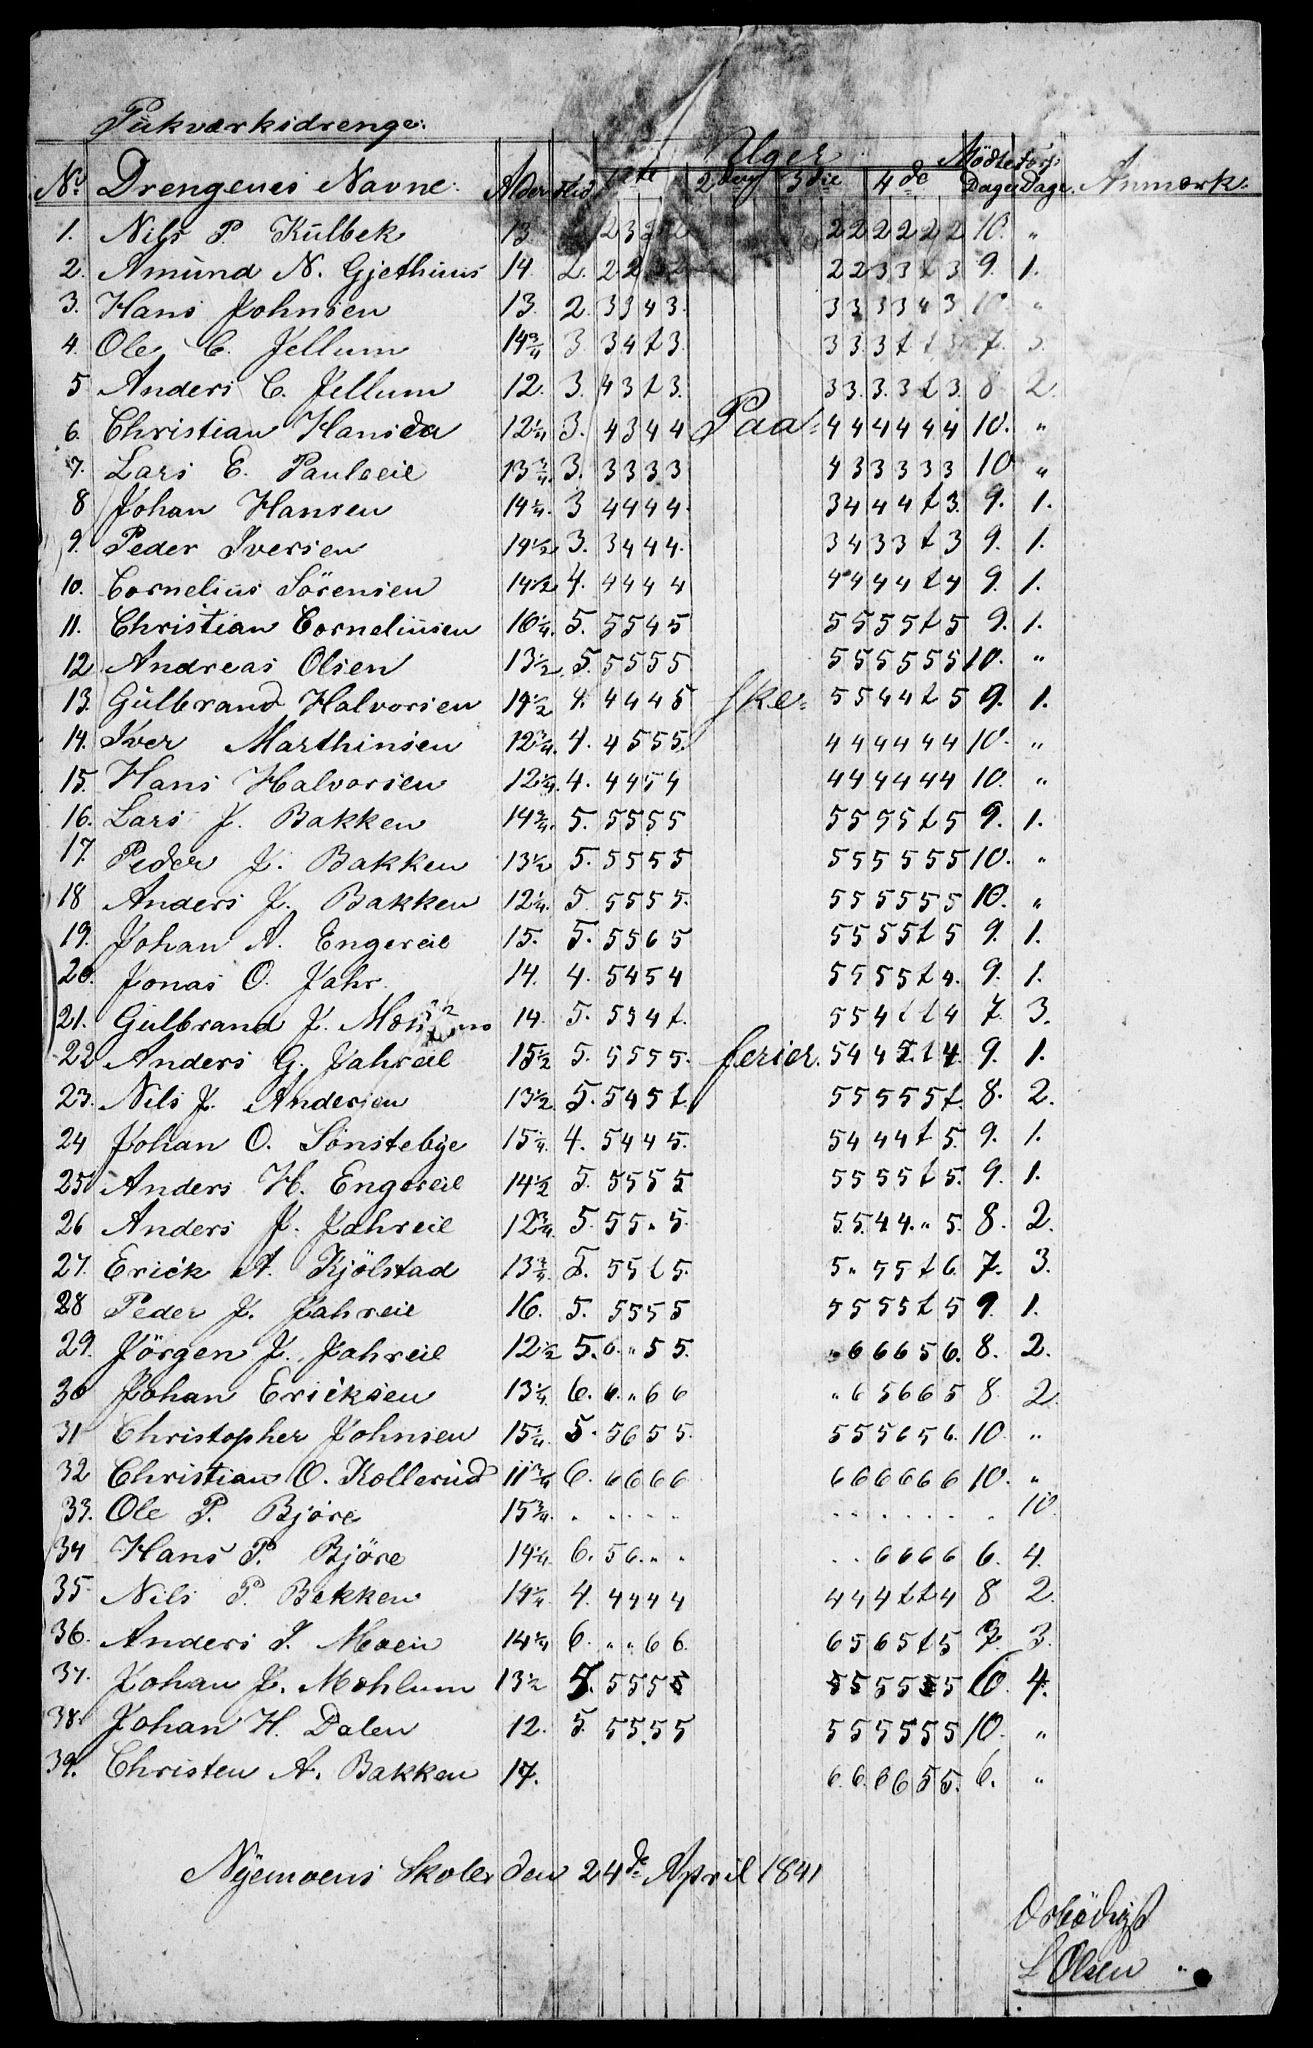 Pukværksdrenge:
Uger
No Drengenes Navne. Alder Flid 1ste 2den 3die 4de Mødte Dage fors: Dage. Anmærk:
1. Nils P. Kulbek 13 2 3 2 2 2 2 2 2 2 10. "
2. Amund N. Gjethuus 14. 2. 2 2 2 2 2 3 3 t 3 9. 1.
3. Hans Johnsen 13. 2. 3 3 4 3. 3 3 3 3 4 3 10 "
4. Ole C. Jellum 14 3/4 3 3 4 t 3. 3 3 3 t t 3 7. 3.
5 Anders C. Jellum 12. 3. 4 3 t 3. 3 3. 3. 3 t 3. 8 2.
6. Christian Hanseda 12 1/4 3. 4 3 4 4 Paa= 4 4 4 4 4 4 10. "
7. Lars E. Pauleeie 13 3/4. 3. 3 3 3 3 4 3 3 3 3 3 10 "
8 Johan Hansen 14 1/4. 3 4 4 4 4. 3 4 4 4 t 3. 9. 1.
9. Peder Iversen 14 1/2 3. 3 4 4 4. 3 4 3 3 t 3 9. 1.
10. Cornelius Sörensen 14 1/2 4. 4 4 4 4 4 4 4 4 t 4 9. 1.
11. Christian Corneliusen 16 1/4. 5. 5 5 4 5 5 5 5 5 t 5 9. 1.
12 Andreas Olsen 13 1/2. 5. 5 5 5 5 5 5 5 5 5 5 10. "
13. Gulbrand Halvorsen 14 1/2 4. 4 4 4 5 ske= 5 5 4 4 t 5 9. 1.
14. Iver Marthinsen 12 3/4. 4. 4 5 5 5. 4 4 4 4 4 4 10. "
15. Hans Halvorsen 12 1/4. 4. 4 4 5 4 4 4 4 4 4 4 10. "
16. Lars J. Bakken 14 3/4. 5. 5 5 5 5 5 5 5 5 t 5 9. 1.
17. Peder J. Bakken 13 1/2 5. 5 5 5 5 5 5 5 5 5 5 10. "
18 Anders J. Bakken 12 1/4. 5. 5 5 5 5. 5 5 5 5 5 5 10. "
19. Johan A. Engereie 15. 5. 5 5 6 5 5 5 5 5 t 5 9. 1.
20. Jonas O. Jahr. 14. 4. 5 4 5 4 5 5 5 5 t 4. 9. 1.
21. Gulbrand J. 14. 5. 5 5 4 t. 5 5 4 t t 4 7. 3.
22 Anders G. Jahreie 15 1/2 5. 5 5 5 5. ferier. 5 4 4 t t 4. 9. 1.
23. Nils J. Andersen 13 1/2. 5. 5 4 5 t. 5 5 5 5 5 t. 8. 2.
24 Johan O. Sönstebye 15 1/4. 4. 5 4 4 5. 5 4 4 4 t 5. 9. 1.
25 Anders H. Engereie 14 1/2 5. 5 5 5 5 5 5 5 5 t 5. 9. 1.
26 Anders J. Jahreie 12 3/4. 5. 5 5 " 5. 5. 5. 4 4. " 5. 8. 2.
27. Erick A. Kjölstad 13 3/4. 5. 5 5 t 5. 5. " 5 5 t 6. 7. 3.
28 Peder J. Jahreie 16. 5. 5 5 5 5 5 5 5 5 t 5 9. 1.
29. Jörgen J. Jahreie 12 1/2 5. 6. " 5 5. " 6 6 6 5 6. 8. 2.
30 Johan Ericksen 13 1/4. 6. 6. " 6 6 " 6 5 6 6 5 8. 2.
31 Christopher Johnsen 15 1/4. 5. 5 6 5 5. 5 5 5 6 5 6. 10. "
32 Christian O. Kollerud 11 3/4 6. 6 6 6 6 6 6 6 6 6 6 10. "
33. Ole P. Björe 15 3/4. . . . . . . . . . . . . 10.
34 Hans P. Björe 14 1/4. 6. 5 6. " " . . 6 6 6 6 6. 4.
35 Nils P. Bekken 14 1/4. 4. 4 4 4 4 4 4 4 t t 4 8 2.
36. Anders I. Moen 14 1/4 6. " " 6 6. 6 5 6 5 t 5 7. 3.
37. Johan J. Mohlum 13 1/2 5. 5 5 5 5 5 5 5 5 5 5 6 4.
38. Johan H. Dalen 12. 5. 5 5 5 5 5 5 5 5 5 5 10. "
39. Christen A. Bakken 17. 6. 6. 6 6 5 5. 6. "
Nyemoens Skoler den 24de April 1841
Ærbödigst
L Olsen